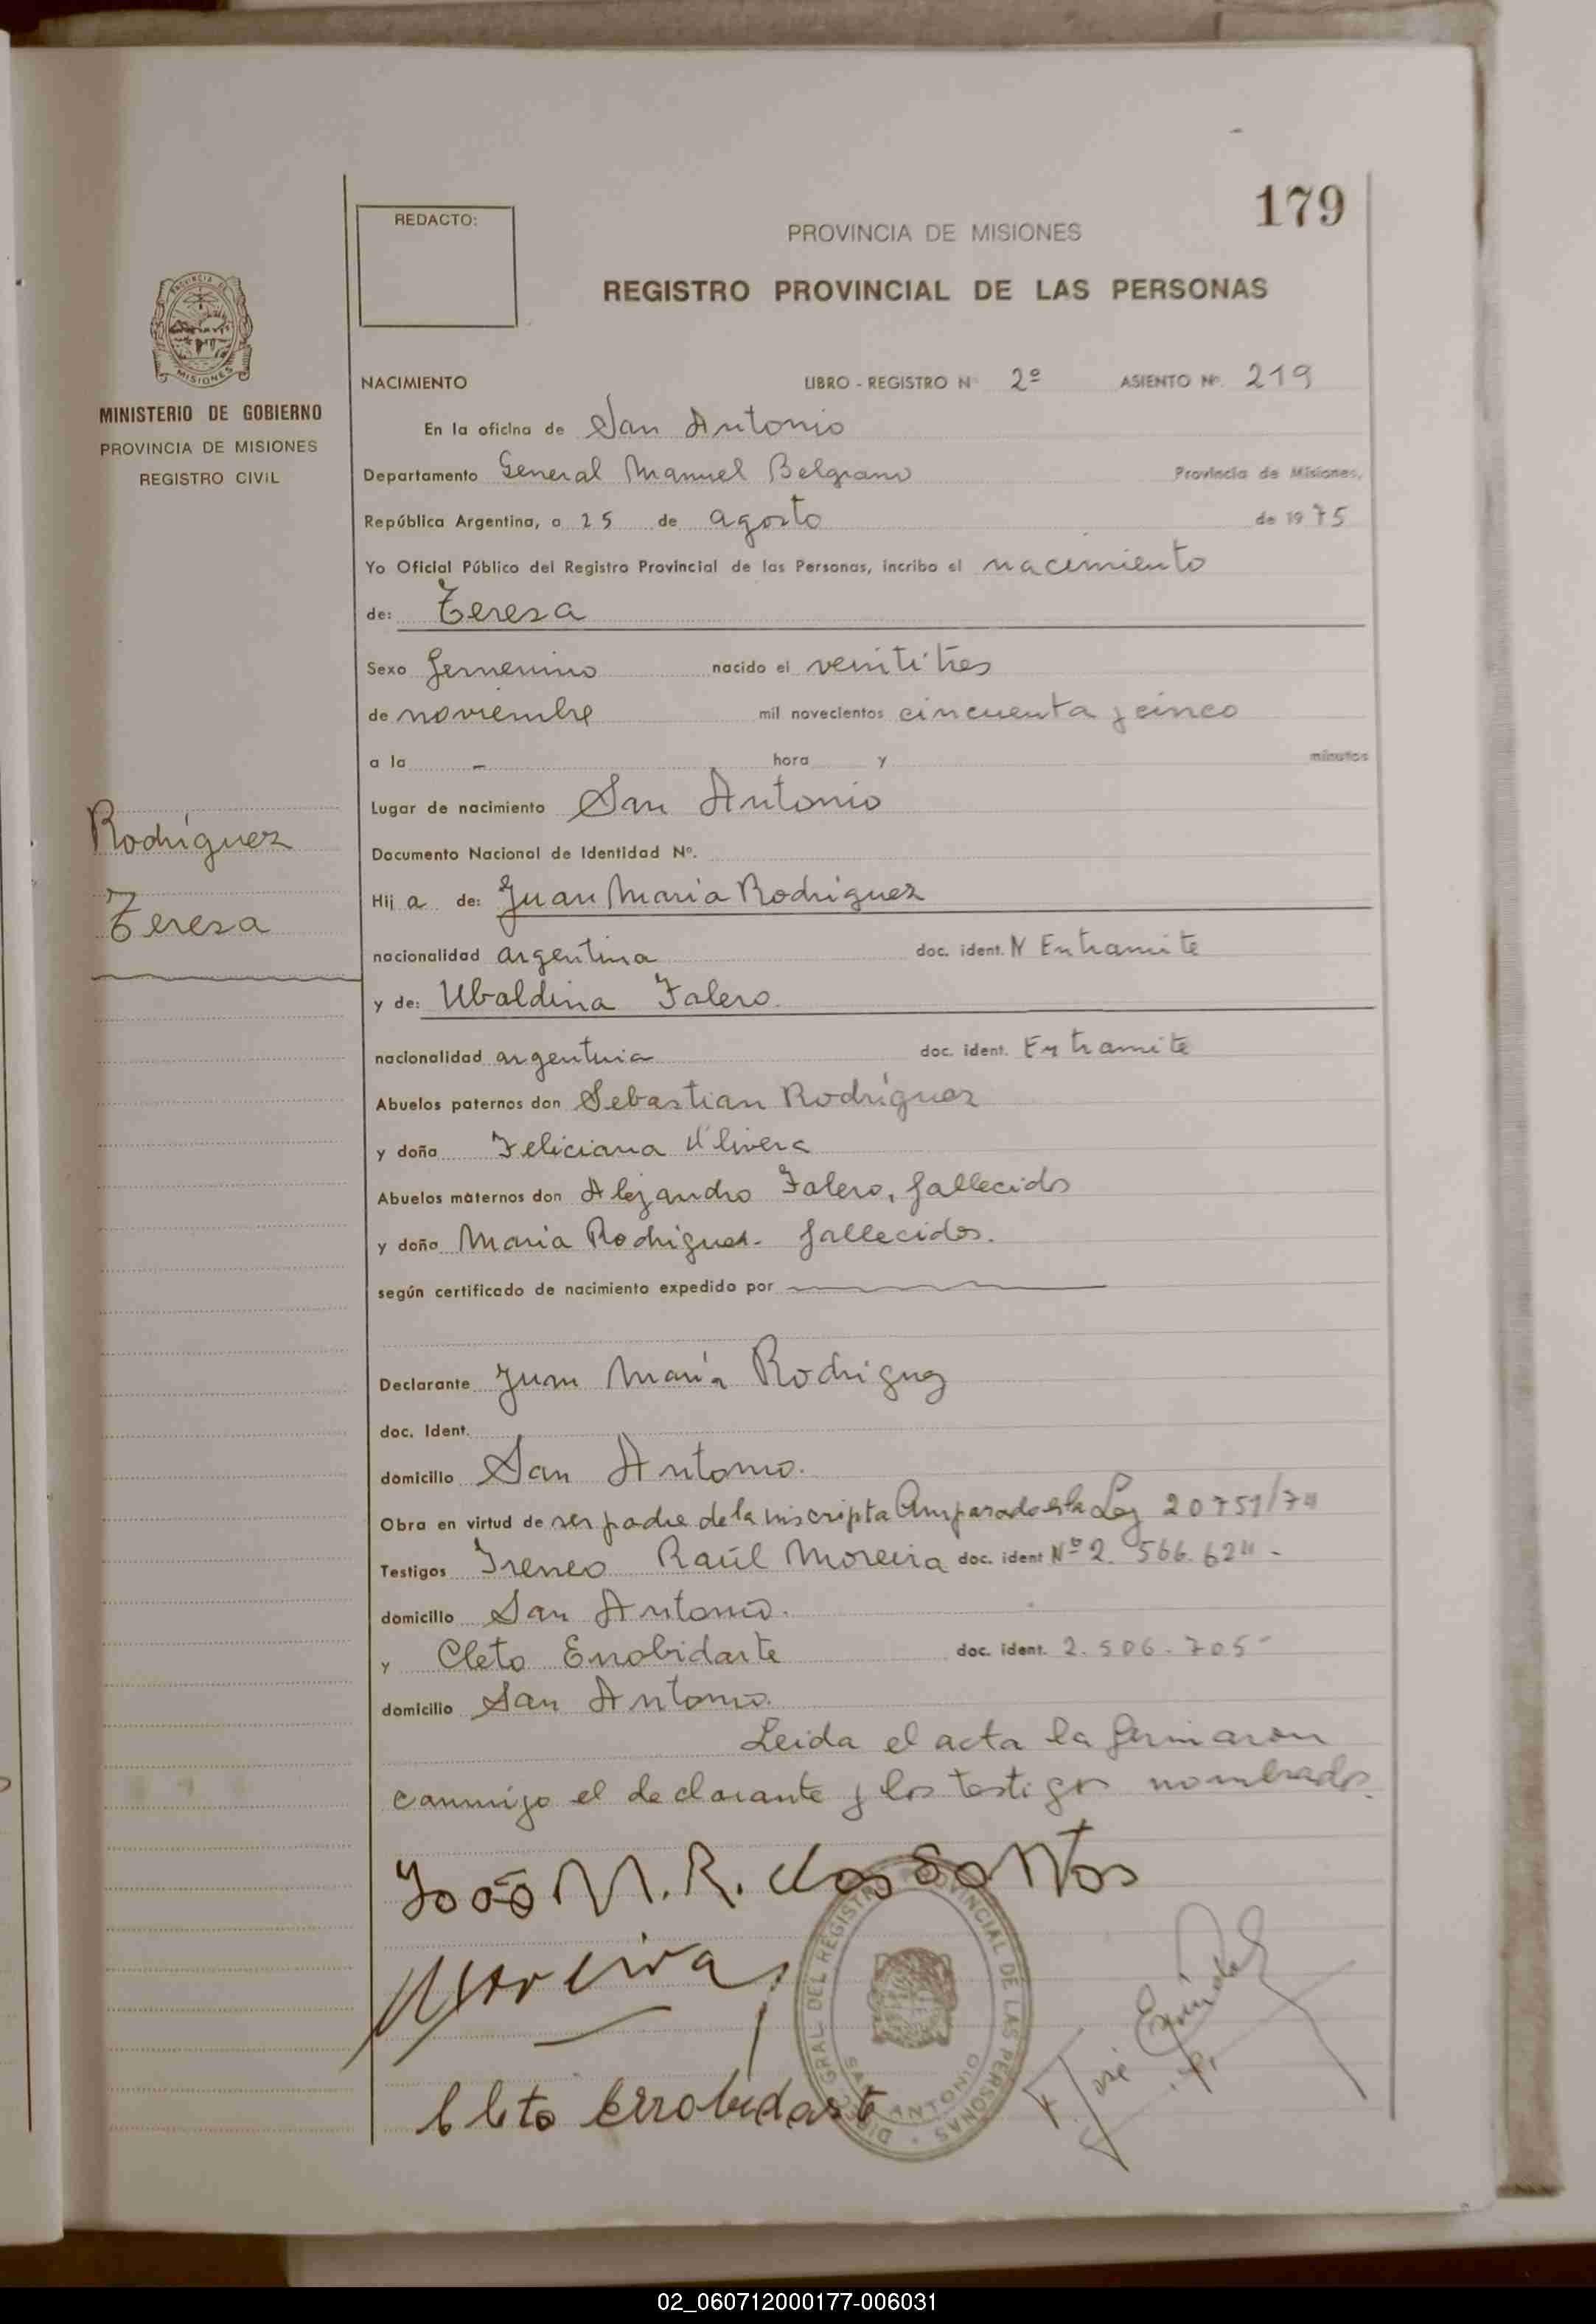 179
REDACTO:
PROVINCIA DE MISIONES
REGISTRO PROVINCIAL DE LAS PERSONAS
MISIONES
MINISTERIO DE GOBIERNO
PROVINCIA DE MISIONES
REGISTRO CIVIL
NACIMIENTO LIBRO - REGISTRO Nº 2º ASIENTO Nº. 219
En la oficina de San Antonio
Departamento General Manuel Belgrano Provincia de Misiones,
República Argentina, a 25 de agosto de 1975
Yo Oficial Público del Registro Provincial de las Personas, incribo el nacimiento
de: Teresa
Sexo femenino nacido el veintitres
de noviembre mil novecientos cincuenta y cinco
a la - hora y minutos
Lugar de nacimiento San Antonio
Rodríguez
Teresa
Documento Nacional de Identidad Nº.
Hij a de: Juan Maria Rodriguez
nacionalidad argentina doc. ident. N En tramite
y de: Ubaldina Falero.
nacionalidad argentina doc. ident. En tramite
Abuelos paternos don Sebastian Rodríguez
y doña Feliciana Olivera
Abuelos maternos don Alejandro Falero, fallecido
y doña Maria Rodriguez. fallecidos.
según certificado de nacimiento expedido por
Declarante Juan María Rodriguez
doc. Ident.
domicilio San Antonio.
Obra en virtud de ser padre de la inscripta Amparado en la Ley 20751/74
Testigos Ireneo Raúl Moreira doc. ident Nº 2. 566. 624 -
domicilio San Antonio.
y Cleto Errobidarte doc. ident. 2.506.705-
domicilio San Antonio.
Leida el acta la firmaron
conmigo el declarante y los testigos nombrados.
João M. R. dos Santos
Moreira
Cleto Errobidart
DEL REGISTRO PROVINCIAL DE LAS PERSONAS
SAN ANTONIO
02_060712000177-006031